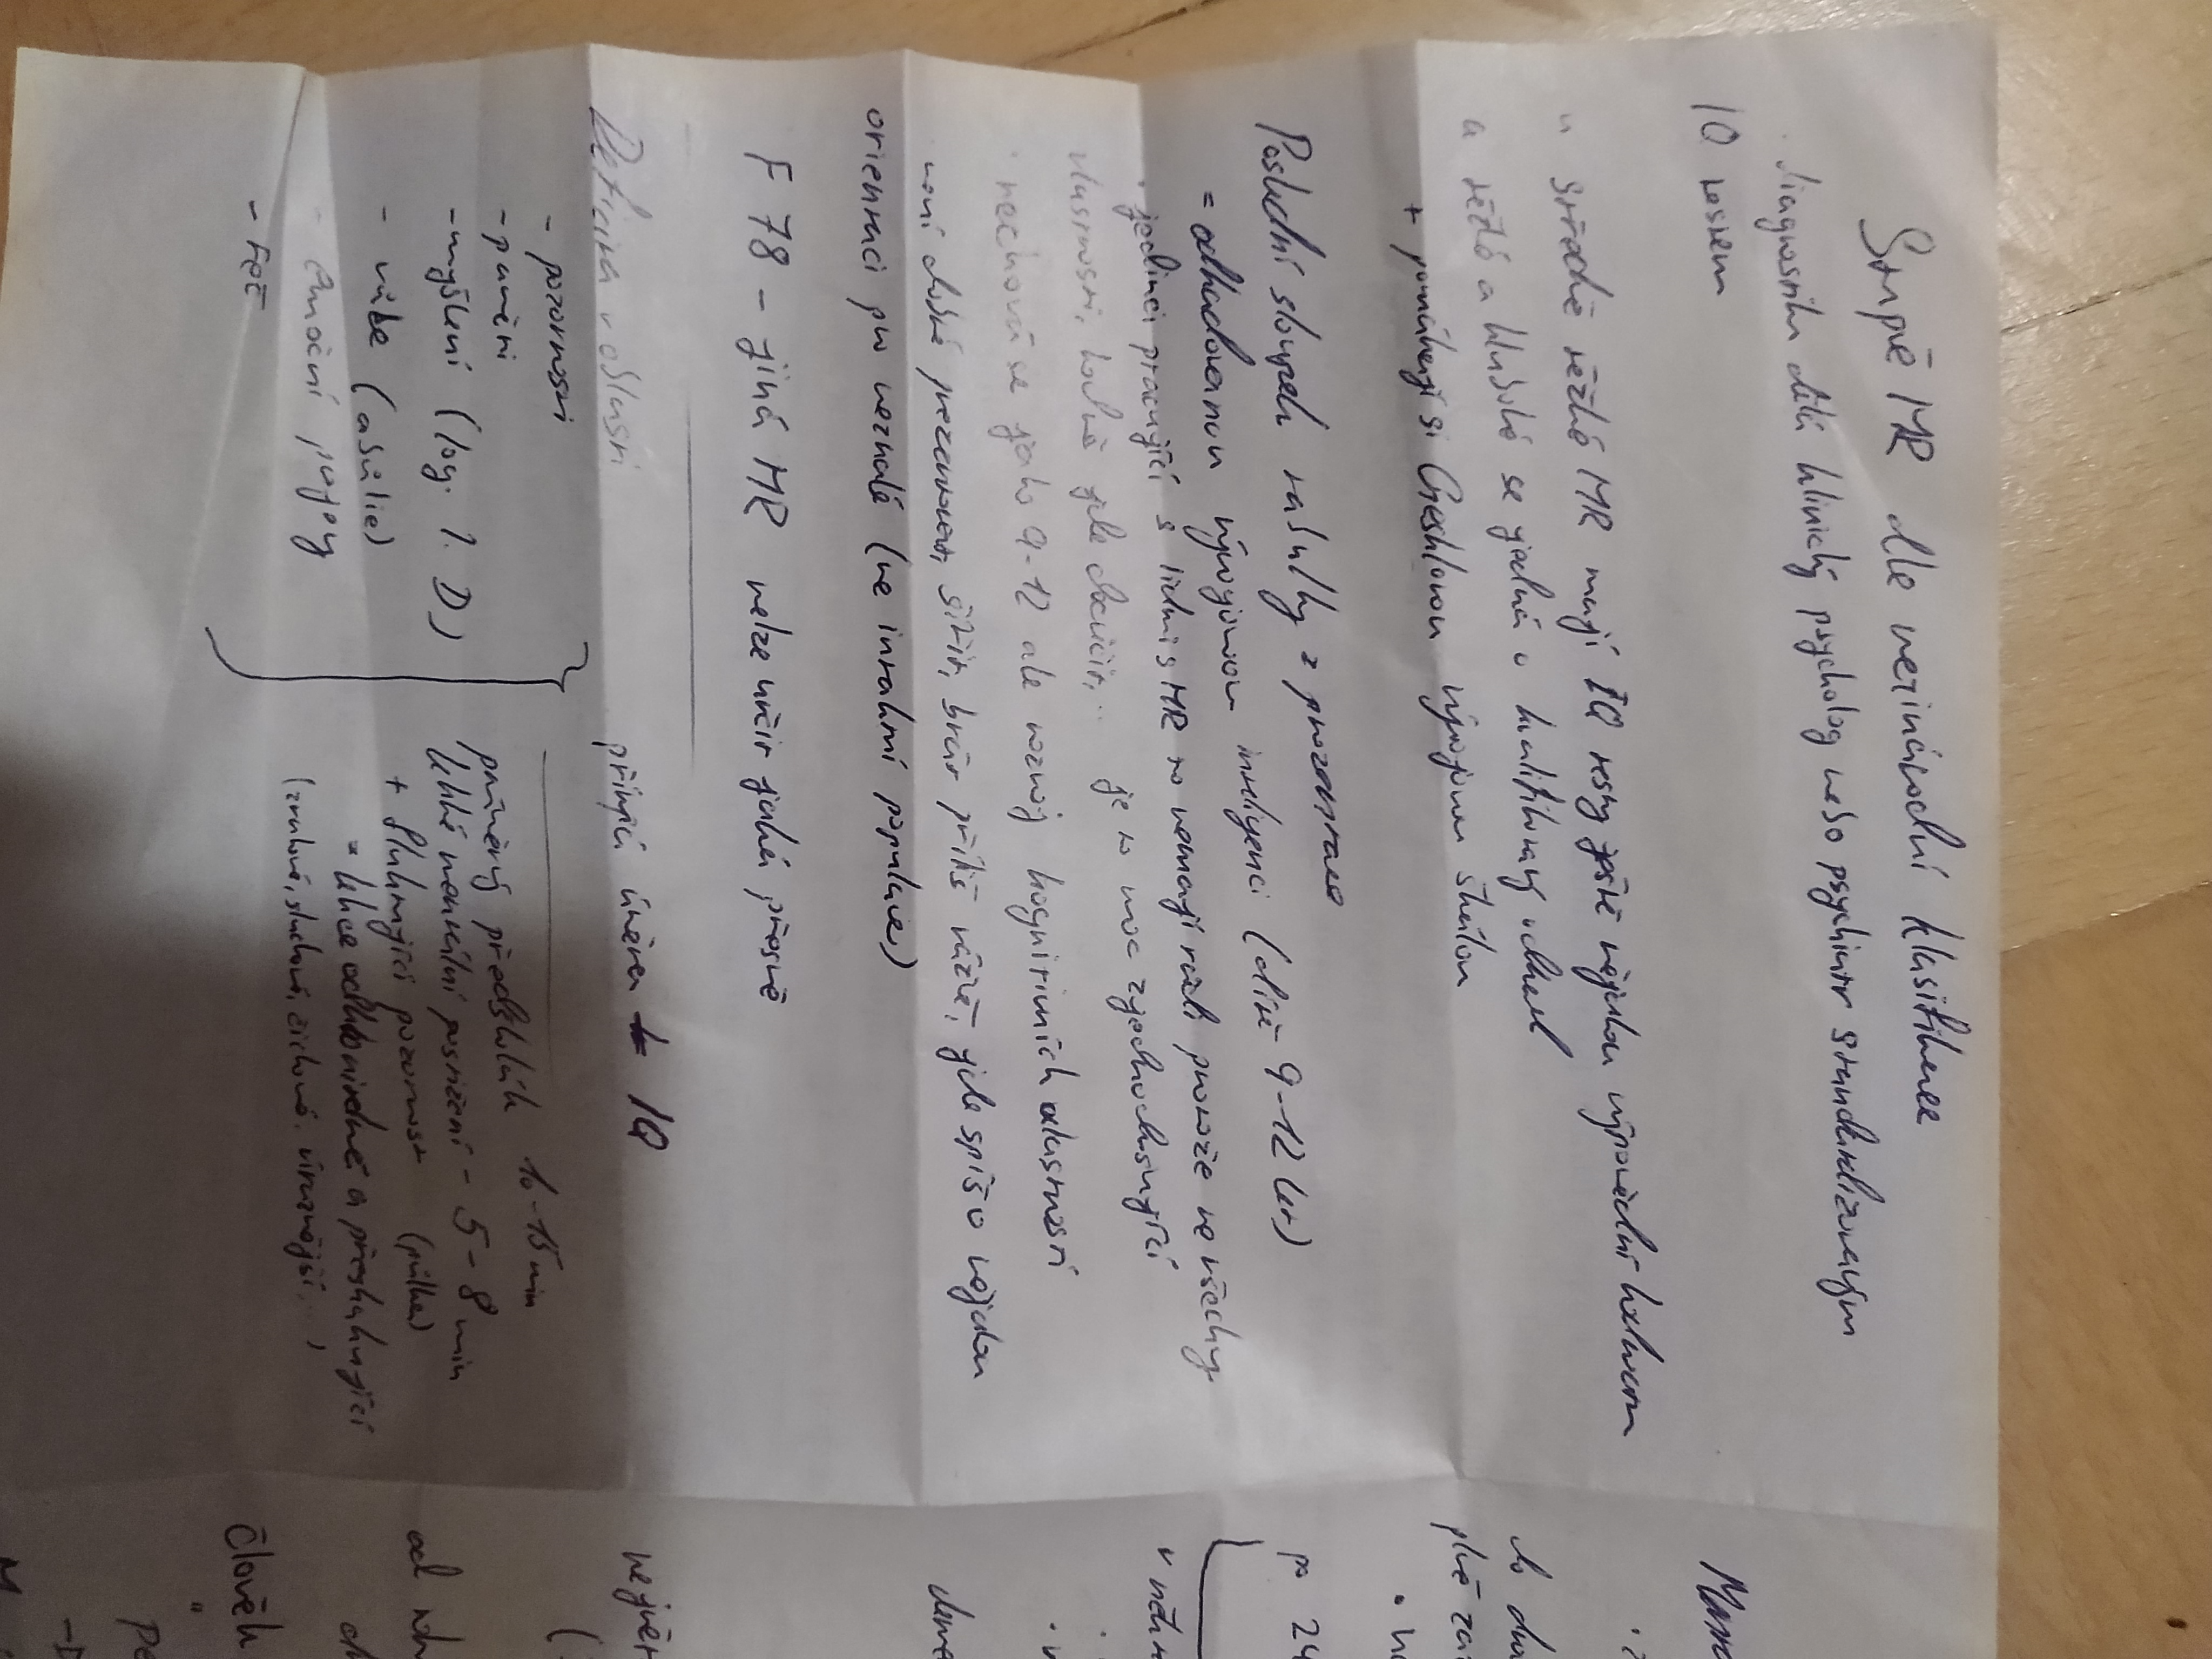 Stupě MR dle mezinárodní klasifikace
· diagnostiku dělá klinický psycholog nebo psychiatr standardizovaným
IQ testem
u středně těžké MR mají IQ testy ještě nějakou výpovědní hodnotu
u těžké a hluboké se jedná o kvalifikovaný odhad
+ pomáhají si Gesellovou vývojovou škálou
Poslední sloupek tabulky z prezentace
= odhadovanou vývojovou inteligenci (dítě 9-12 let)
· jedinci pracující s lidmi s MR to nemají rádi protože ne všechny
vlastnosti, hodně jde docvičit,.. je to moc zjednodušující
· nechová se jako 9-12 ale rozvoj kognitivních vlastností
· není dobré prezentovat, sdělit, brát příliš vážně, jde spíš o nějakou
orientaci pro neznalé (ne intaktní populace)
F 78 - jiná MR nelze určit jaká přesně
Deficita v oblasti přímá úměra IQ
- pozornosti
- paměti
- myšlení (log. I. D)
- vůle (abúlie)
- emoční projevy
- řeč
průměrný předškolák 10-15 min
lehké mentální postižení - 5-8 min
+ fluktuující pozornost (půlka)
= lehce odklonitelné a přeskakující
(zrakové, sluchové, čichové, vnitřnější,..)
do
plně
po 24
nejvěr
od
Člověk